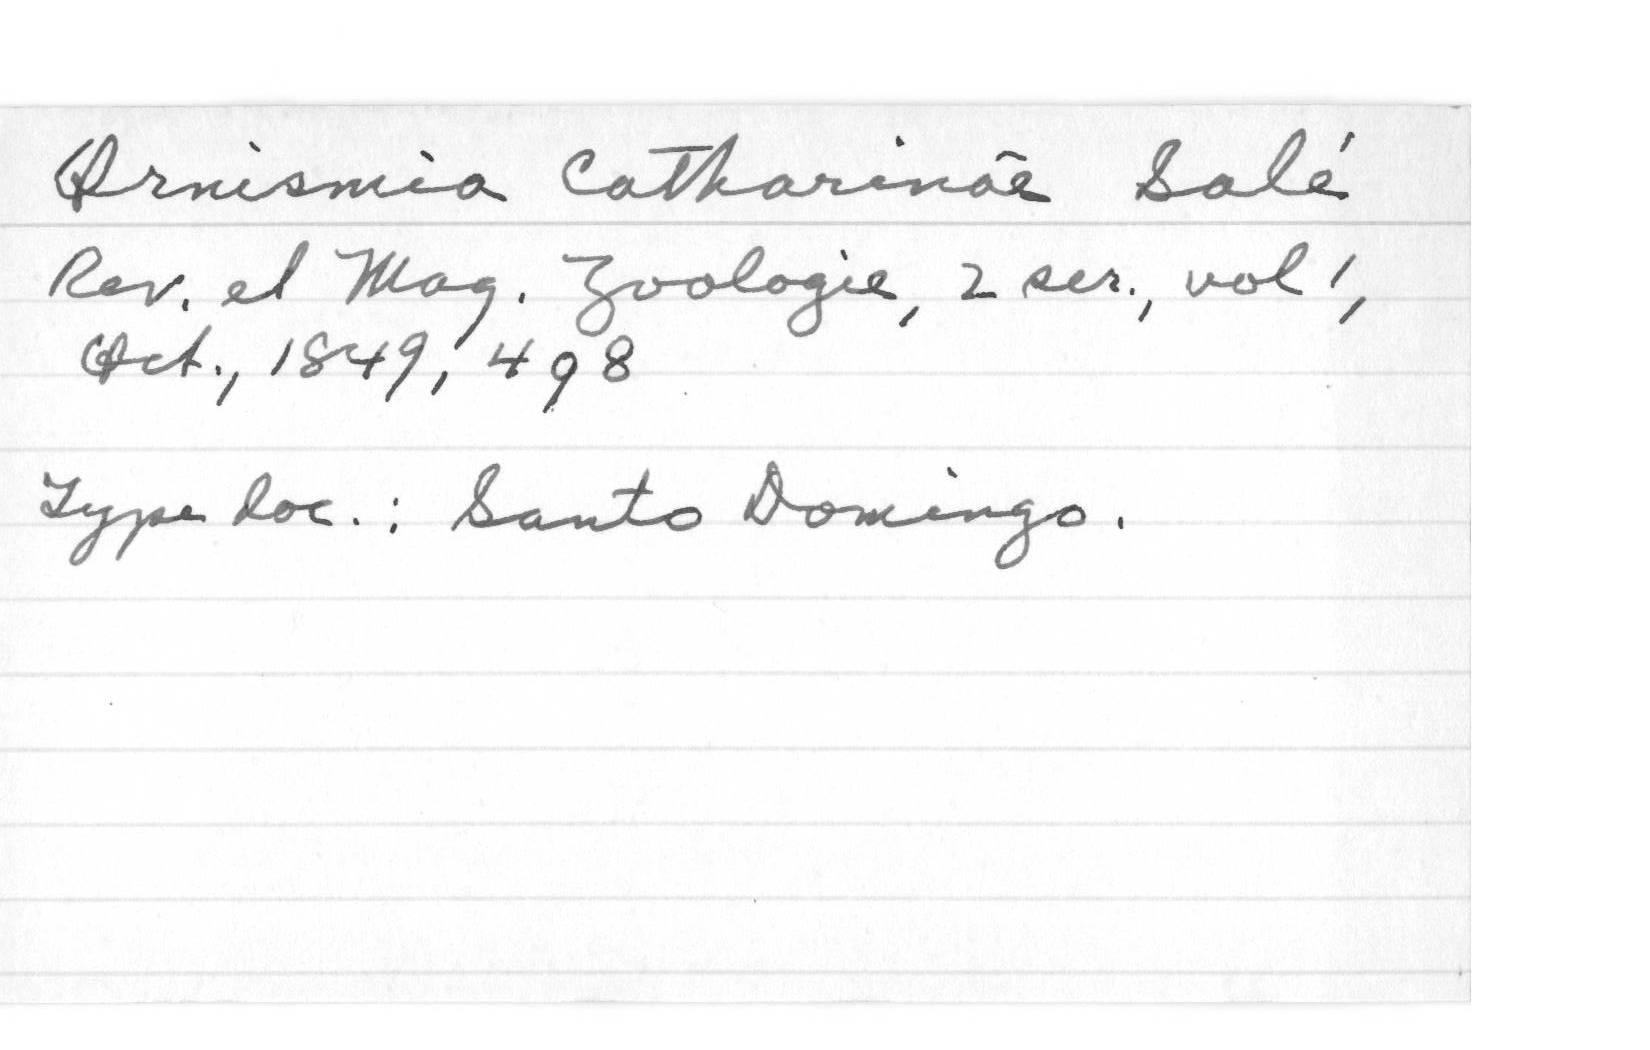 Ornismia Catharinae Salé
Rev. et Mag. Zoologie, 2 ser., vol 1,
Oct., 1849, 498
Type loc.: Santo Domingo.